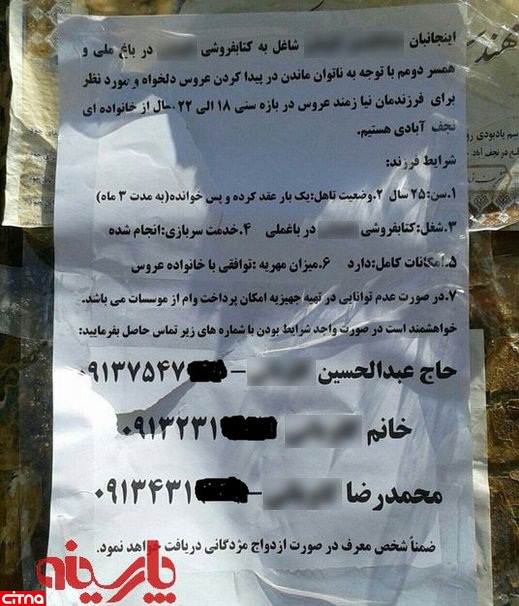 اینجانبان شاغل به کتابفروشی در باغ ملی و
همسر دومم با توجه به ناتوان ماندن در پیدا کردن عروس دلخواه و مورد نظر
برای فرزندمان نیا زمند عروس در بازه سنی ۱۸ الی ۲۲ سال از خانواده ای
نجف آبادی هستیم.
شرایط فرزند:
۱.سن:۲۵ سال ۲.وضعیت تاهل:یک بار عقد کرده و پس خوانده(به مدت ۳ ماه)
۳.شغل:کتابفروشی در باغملی ۴.خدمت سربازی:انجام شده
۵.امکانات کامل:دارد ۶.میزان مهریه :توافقی با خانواده عروس
۷.در صورت عدم توانایی در تهیه جهیزیه امکان پرداخت وام از موسسات می باشد.
خواهشمند است در صورت واجد شرایط بودن با شماره های زیر تماس حاصل بفرمایید:
حاج عبدالحسین –۰۹۱۳۷۵۴۷
خانم ۰۹۱۳۲۳۱
محمدرضا –۰۹۱۳۴۳۱
ضمناً شخص معرف در صورت ازدواج مژدگانی دریافت خواهد نمود.
پارسینه
CITNA